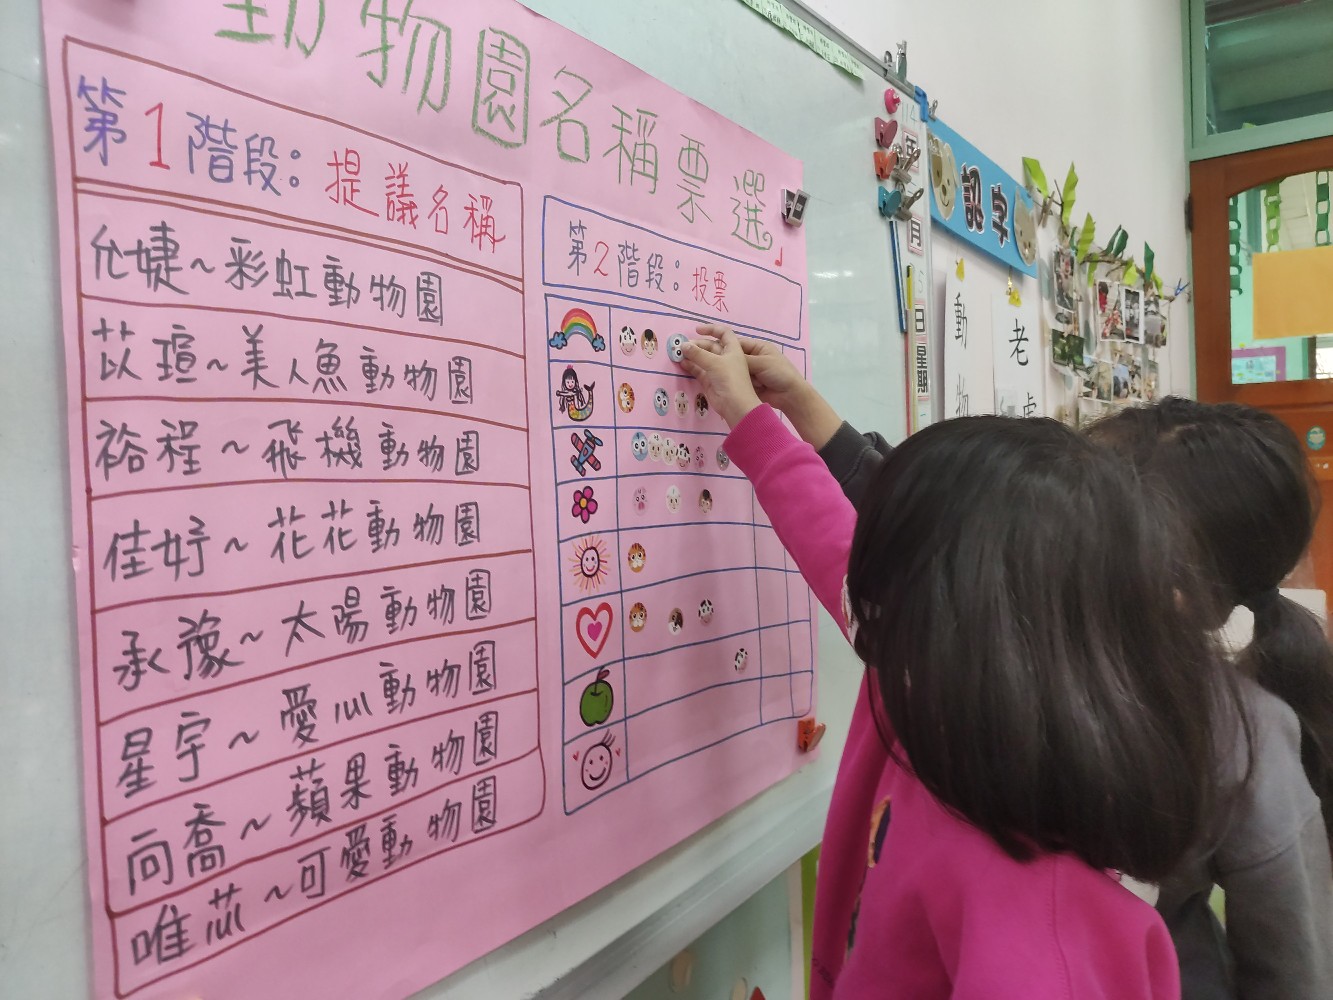 動物園名稱票選
第1階段：提議名稱
允婕~彩虹動物園
苡瑄~美人魚動物園
裕程~飛機動物園
佳妤~花花動物園
承豫~太陽動物園
星宇~愛心動物園
向喬~蘋果動物園
唯芯~可愛動物園
第2階段：投票
月
5
日
星
期
認字
動
物
老
虎